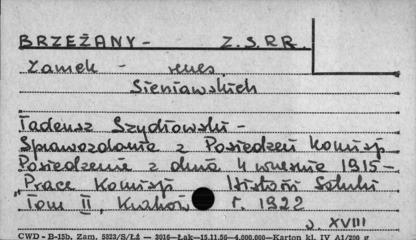 BRZEŻANY - Z.S.R.R.
Zamek - renes.
Sieniawskich
Tadeusz Szydłowski -
Sprawozdanie z Posiedzeń Komisji
Posiedzenie z dnia 4 wrzesnia 1915 -
"Prace Komisji Historii Sztuki
"Tom II, Kraków r. 1922
XVIII
CWD - B-15b, Zam. 5323/S/Łż — 3016—Łak—15.11.56—4.000.000—Karton kl. IV A1/200 g